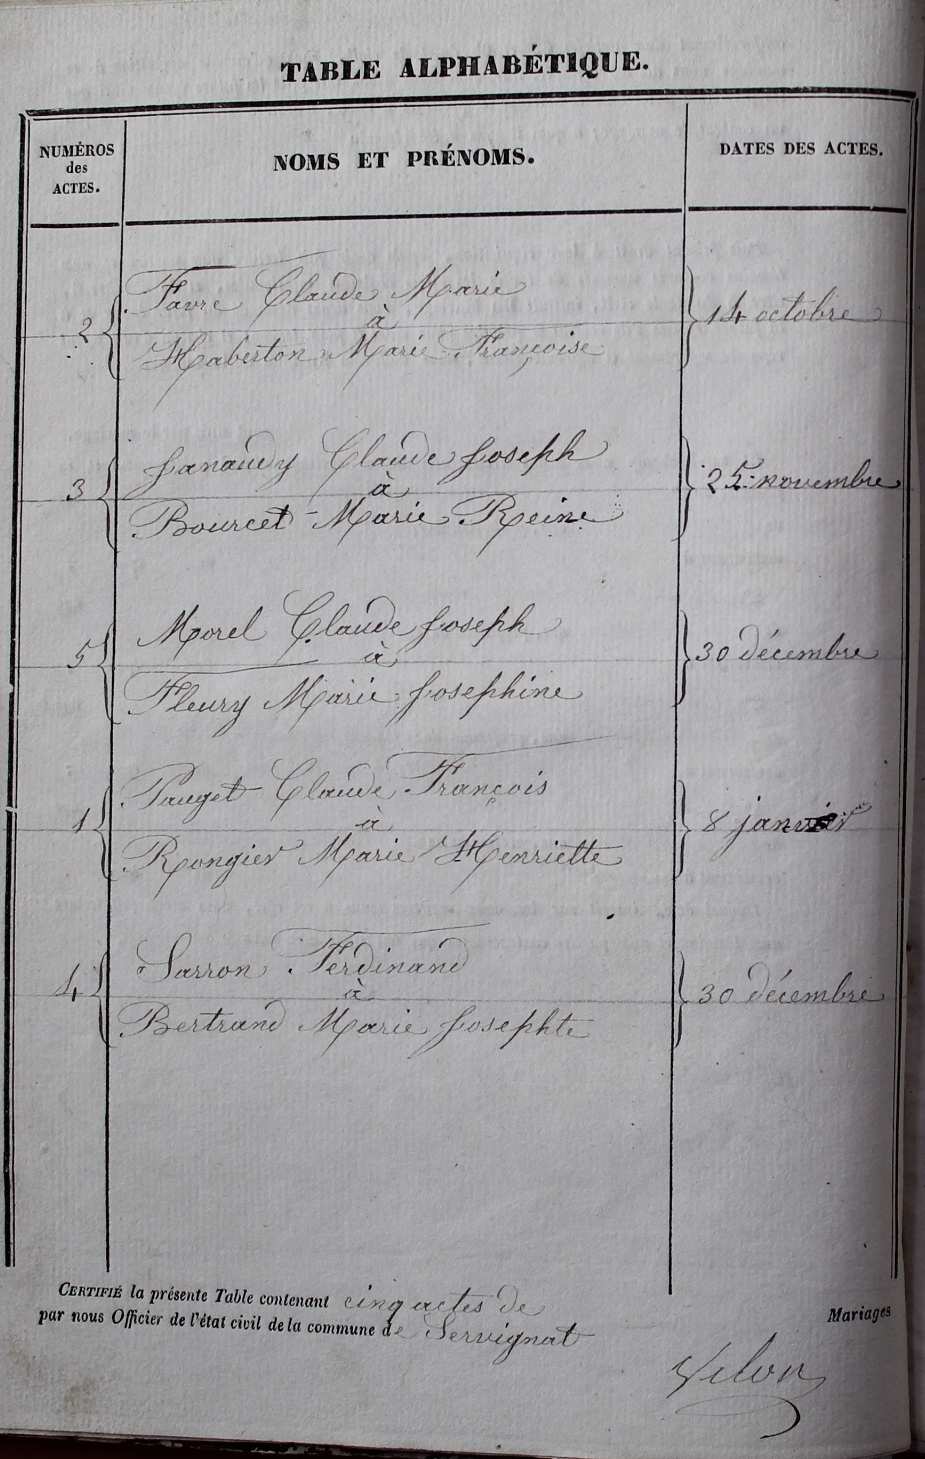 TABLE ALPHABÉTIQUE.
NUMÉROS
des
ACTES.
NOMS ET PRÉNOMS.
DATES DES ACTES.
Favre Claude Marie
2 à 14 octobre
Haberton Marie Françoise
Janaudy Claude Joseph
3 à 25 novembre
Bourcet Marie Reine
Morel Claude Joseph
5 à 30 décembre
Fleury Marie Josephine
Pauget Claude François
1 à 8 janvier
Rongier Marie Henriette
Sarron Ferdinand
4 à 30 décembre
Bertrand Marie Josephte
CERTIFIÉ la présente Table contenant cinq actes de
Mariages
par nous Officier de l'état civil de la commune de Servignat